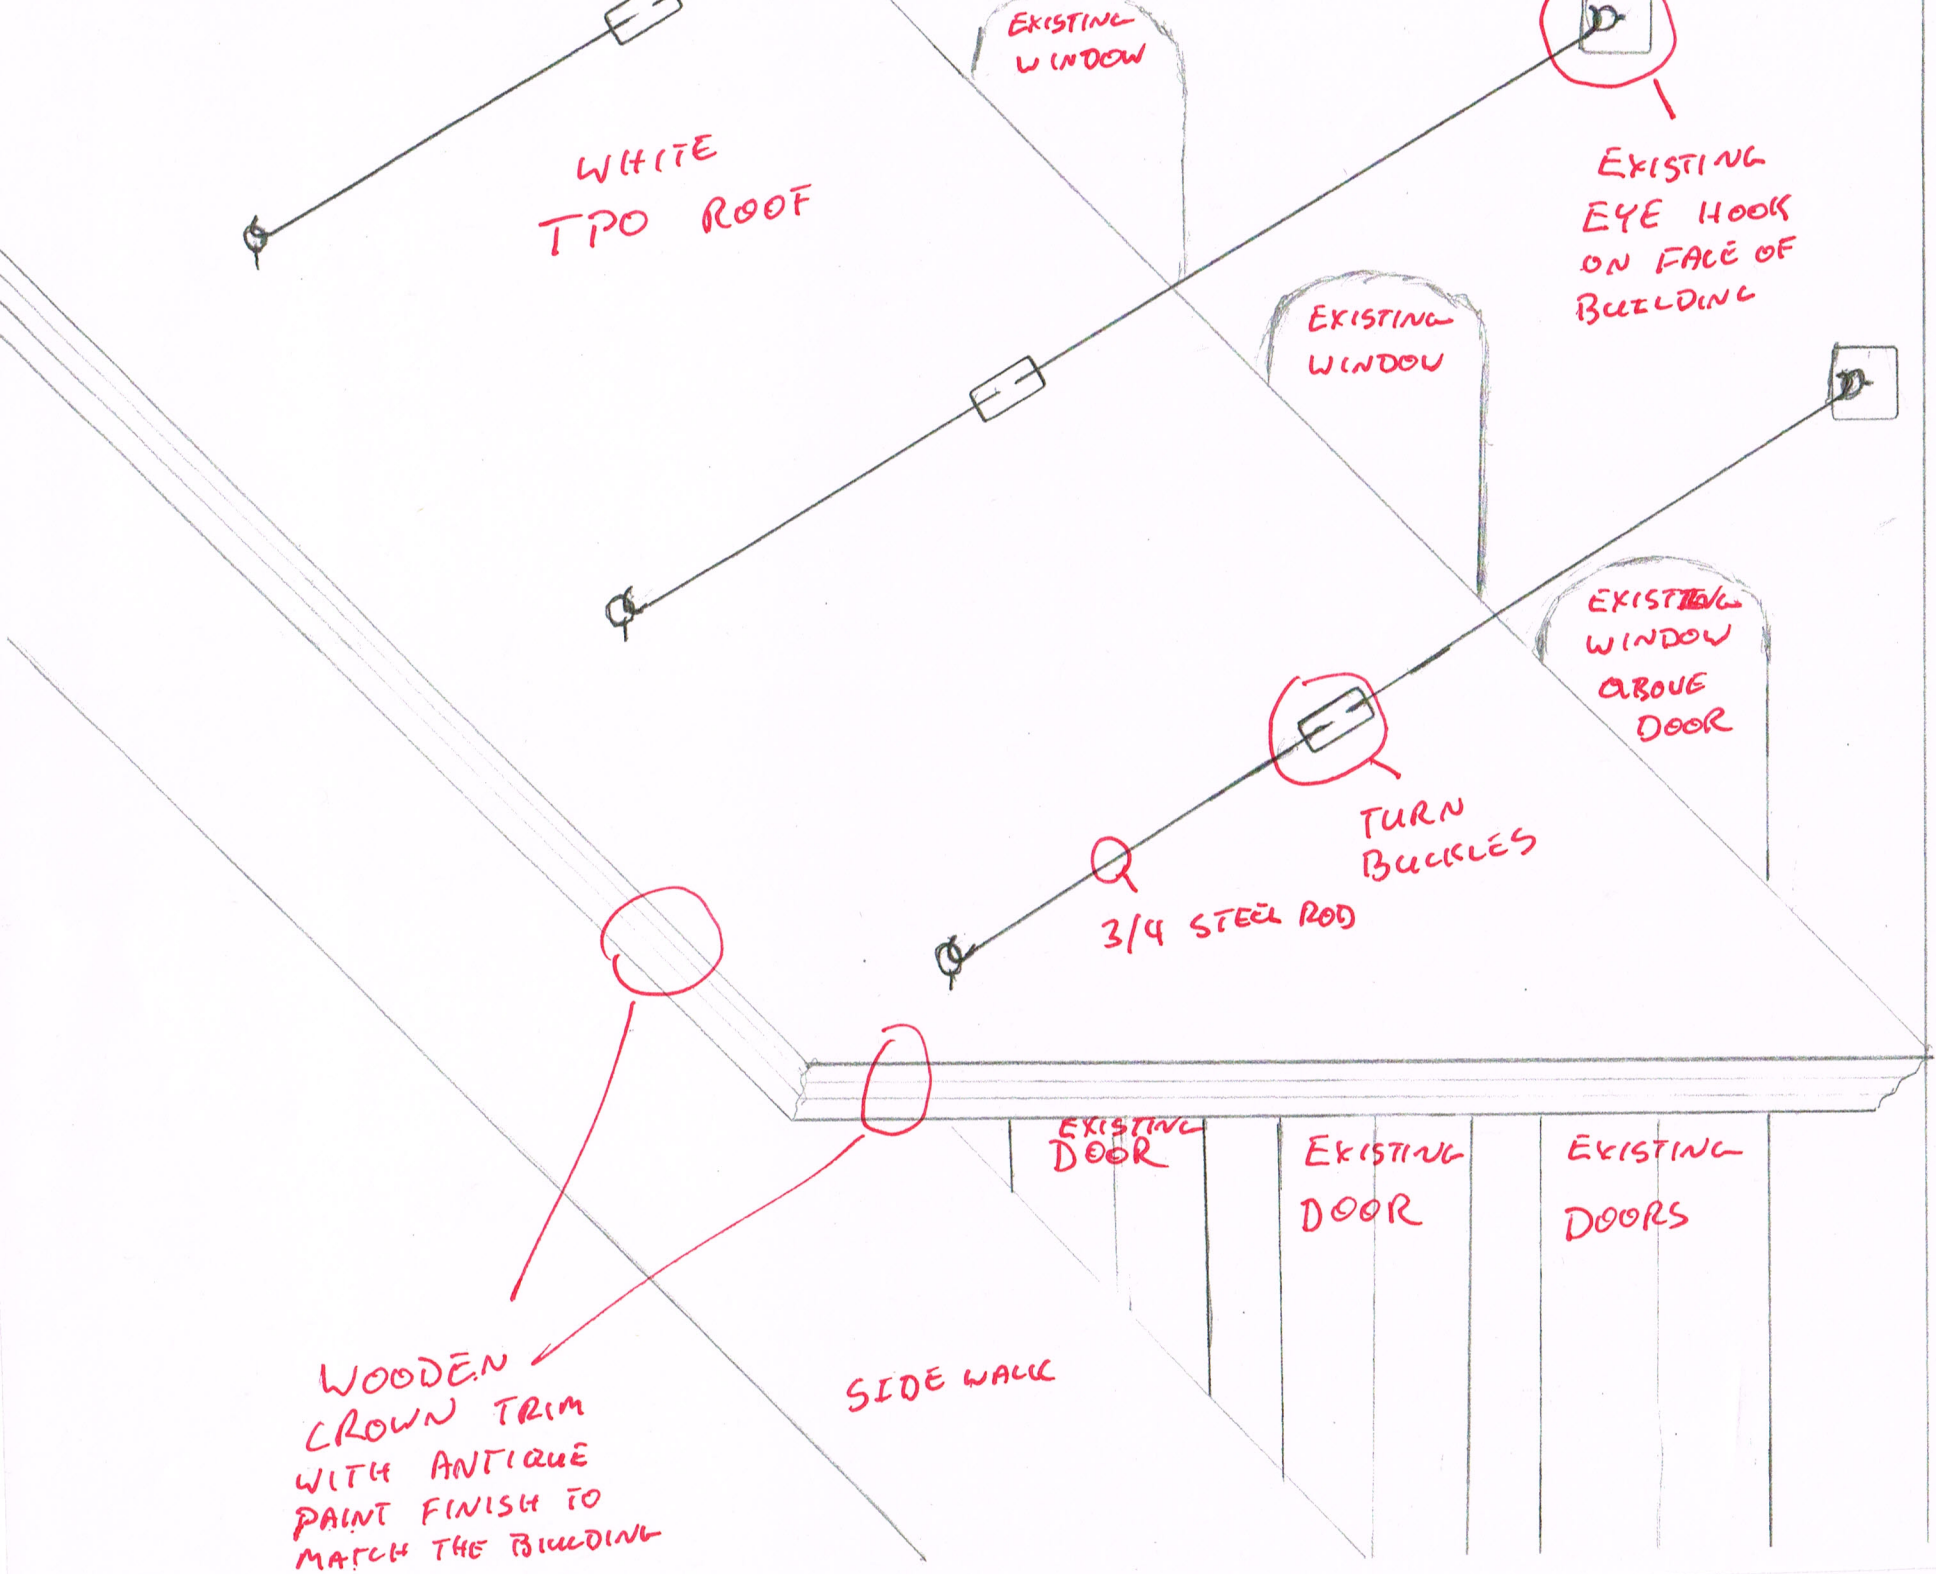 EXISTING
WINDOW
WHITE
TPO ROOF
EXISTING
EYE HOOK
ON FACE OF
BUILDING
EXISTING
WINDOW
EXISTING
WINDOW
ABOVE
DOOR
TURN
BUCKLES
3/4 STEEL ROD
EXISTING
DOOR
EXISTING
DOOR
EXISTING
DOORS
WOODEN
CROWN TRIM
WITH ANTIQUE
PAINT FINISH TO
MATCH THE BUILDING
SIDE WALK